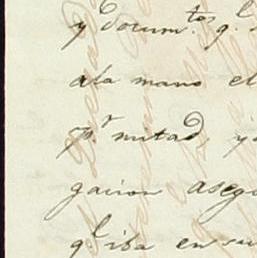 y docum.tos q.l
ala mano el
p.r mitad, y
gacion asegu
q.l iba en su